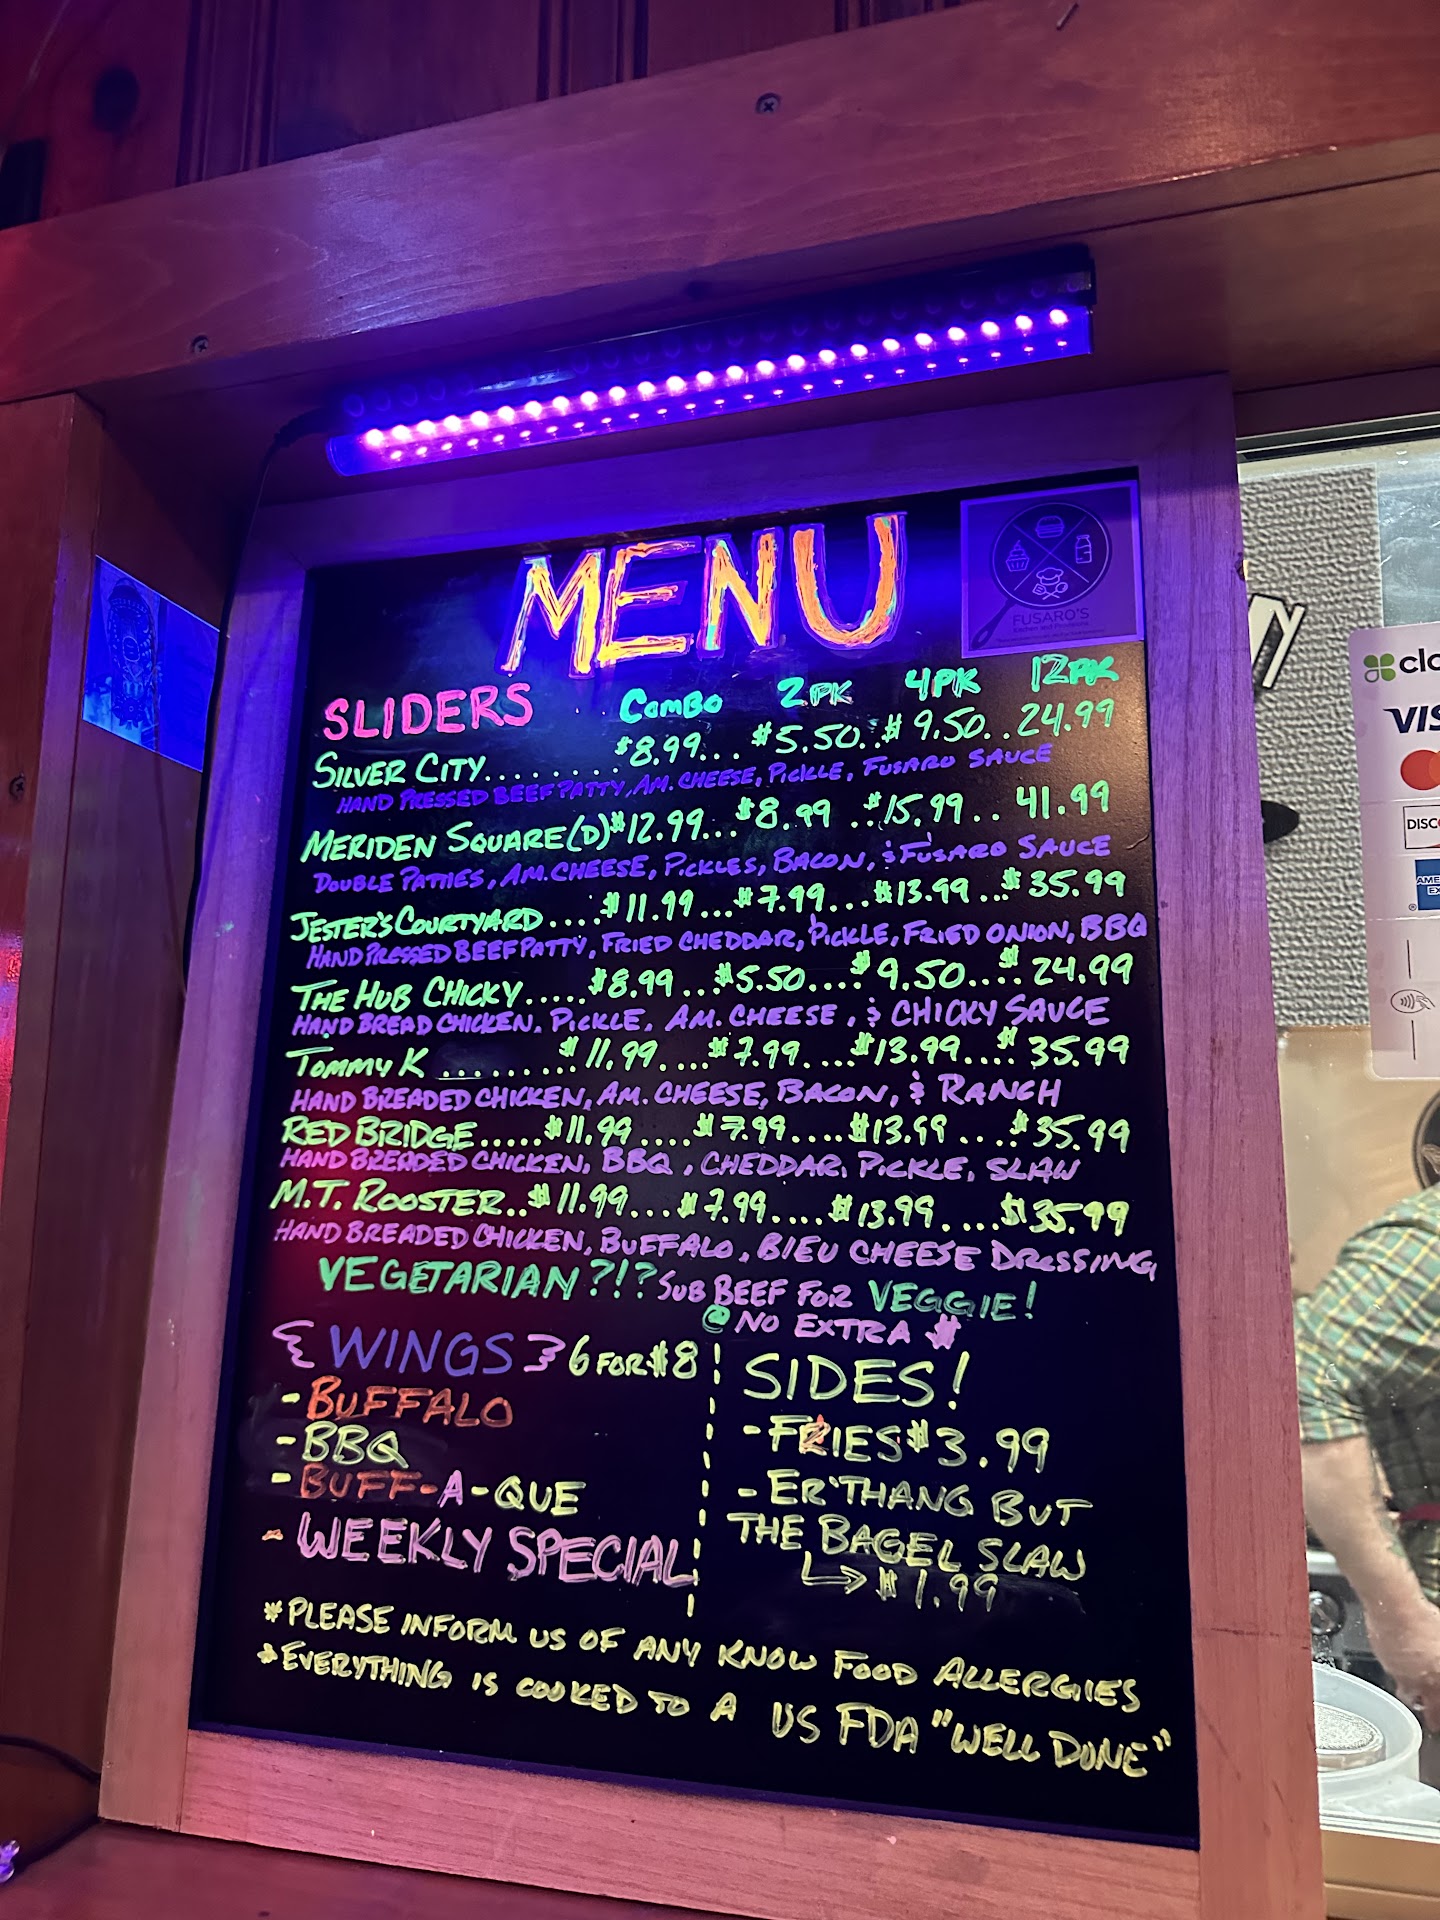 MENU
FUSARO'S
SLIDERS COMBO 2PK 4PK 12PK
SILVER CITY........$8.99...$5.50..$9.50..24.99
HAND PRESSED BEEF PATTY, AM. CHEESE, PICKLE, FUSARO SAUCE
MERIDEN SQUARE(D)$12.99...$8.99..$15.99..41.99
DOUBLE PATTIES, AM. CHEESE, PICKLES, BACON, & FUSARO SAUCE
JESTER'S COURTYARD....$11.99...$7.99...$13.99...$35.99
HAND PRESSED BEEF PATTY, FRIED CHEDDAR, PICKLE, FRIED ONION, BBQ
THE HUB CHICKY.....$8.99...$5.50....$9.50....$24.99
HAND BREAD CHICKEN, PICKLE, AM. CHEESE, & CHICKY SAUCE
TOMMY K.........$11.99....$7.99....$13.99....$35.99
HAND BREADED CHICKEN, AM. CHEESE, BACON, & RANCH
RED BRIDGE.....$11.99....$7.99....$13.99....$35.99
HAND BREADED CHICKEN, BBQ, CHEDDAR, PICKLE, SLAW
M.T. ROOSTER..$11.99....$7.99....$13.99....$35.99
HAND BREADED CHICKEN, BUFFALO, BLEU CHEESE DRESSING
VEGETARIAN?!? SUB BEEF FOR VEGGIE!
@ NO EXTRA $
WINGS 6 FOR $8
- BUFFALO
- BBQ
- BUFF-A-QUE
- WEEKLY SPECIAL
SIDES!
- FRIES $3.99
- ER'THANG BUT
THE BAGEL SLAW
↳ $1.99
* PLEASE INFORM US OF ANY KNOW FOOD ALLERGIES
* EVERYTHING IS COOKED TO A US FDA "WELL DONE"
clo
VIS
DISC
AME
EX